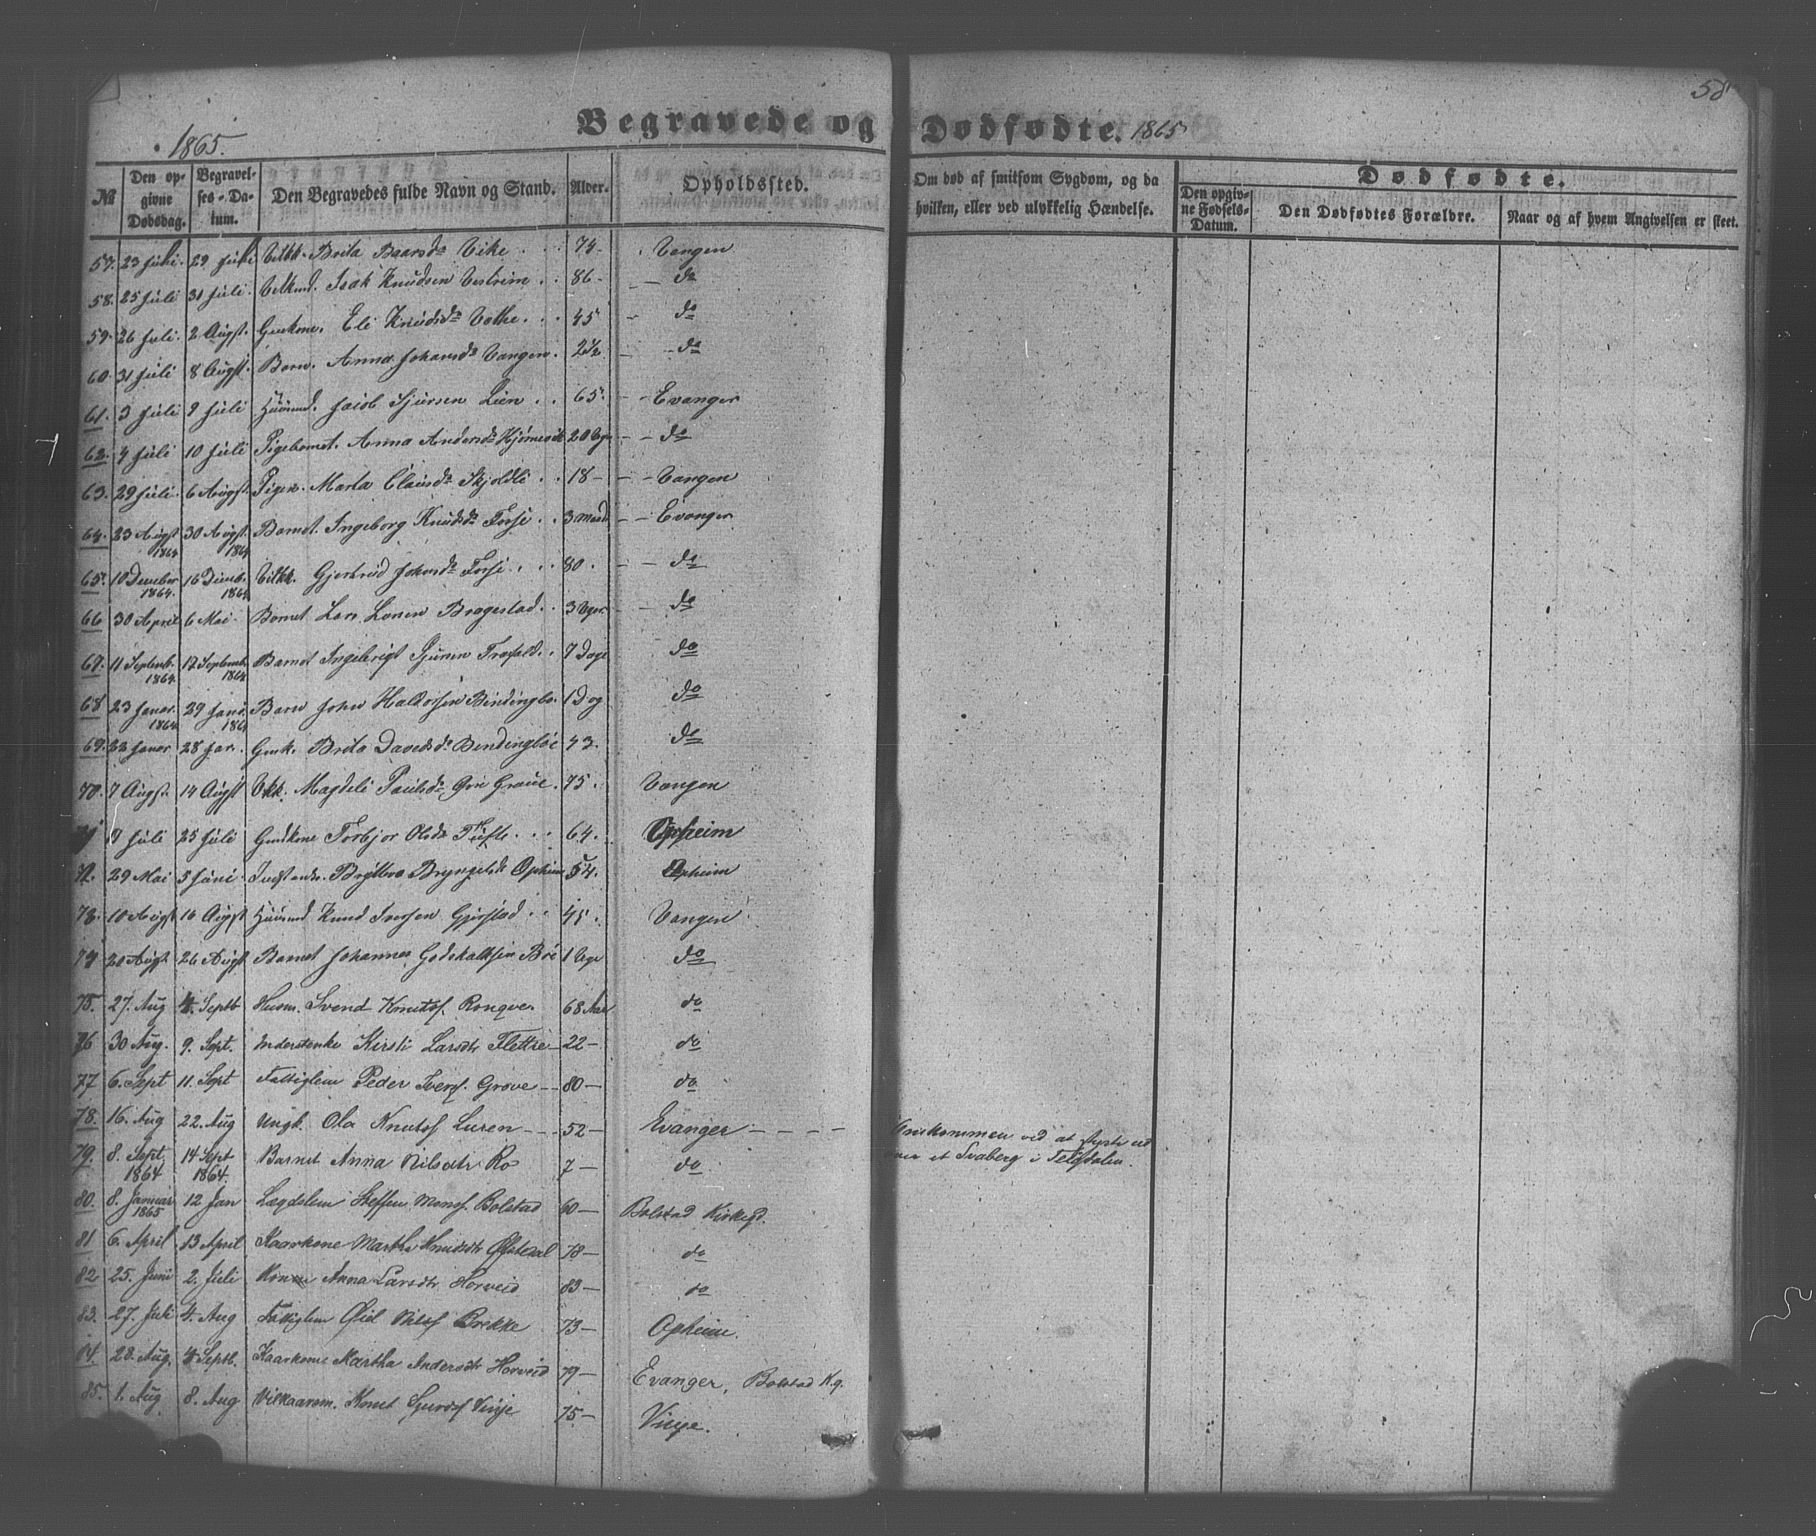 58
1865.
Begravede og Dødfødte. 1865
№
Den op-
givne
Dødsdag.
Begravel-
ses-Da-
tum.
Den Begravedes fulde Navn og Stand.
Alder.
Opholdssted.
Om død af smitsom Sygdom, og da
hvilken, eller ved ulykkelig Hændelse.
Dødfødte.
Den opgiv-
ne Fødsels-
Datum.
Den Dødfødtes Forældre.
Naar og af hvem Angivelsen er skeet.
57. 23 Juli. 29 Juli Brita Baarsdr Vike 74- Vangen
58. 25 Juli 31 Juli. Isak Knudsen 86- do
59. 26 Juli. 2 Augst. Gmkone. Eli Knudsdr Vethe. 45 do
60. 31 Juli 8 Augst. Barn. Anna Johansdr Vangen. 2½ do
61. 3 Juli 9 Juli Huusmd. Jacob Sjursen Lien 65. Evanger
62. 4 Juli 10 Juli Pigebarnet. Anna Andersdr 20 Uger do
63. 29 Juli. 6 Augst. Pigen. Marta Clausdr Skjoldli 18- Vangen
64. 23 Augst 1864 30 Augst. 1864 Barnet Ingeborg Knudsdr Fosse 3 Maad Evanger
65. 10 December 1864. 16 Decmb. 1864 Vilkk. Gjertrud Johansdr Fosse 80. do
66 30 April 6 Mai. Barnet Lars Larsen 3 Uger. do
67. 11 Septemb. 1864. 17 Septemb. 1864 Barnet Sjursen 7 Dage do
68 23 Janar. 1864 29 Janr. 1864 Barn John Haldorsen 1 Dag do
69. 22 Janar 28 Jar. Gmk. Brita Davidsdr 43. do
70. 7 Augst. 14 Augst Vkk. Magdeli Paulsdr Graue. 75. Vangen
71 9 Juli 25 Juli Gmdkone Torbjor Olsdr Tufte 64. Opheim
72. 29 Mai 5 Juni. Bryngelsdr Opheim 54. Opheim
73. 10 Augst 16 Augst Huusmd Knud Iversen Gjerstad 45. Vangen
74 20 Augt. 26 Augst Barnet Johannes Godskalksen Böe 1 Uge do
75. 27. Aug 4. Septb Husm. Svend Knutsf. Ronqve. 68 Aar do
76 30 Aug. 9. Sept. Inderstenke Kirsti Larsdtr Flette 22- do
77 6. Sept 11. Sept Fattiglem Peder Iversf. Grove 80- do
78. 16. Aug 22. Aug Ungk. Ola Knutsf Luren 52- Evanger Omkommen ved at styrte ud
over et Svaberg i Teigdalen.
79. 8. Sept. 1864 14 Sept 1864. Barnet Anna Nilsdtr Ro 7- do
80. 8. Januar 1865 12 Jan Lægdslem Steffen Monsf. Bolstad 60- Bolstad Kirkegd.
81 6. April 13 April Kaarkone Martha Knudsdtr 78- do
82 25. Juni 2. Juli Anna Larsdtr Horveid 83- do
83. 27. Juli 4. Aug Fattiglem Nilsf Brekke 73- Opheim.
84. 28. Aug. 4 Septb. Kaarkone Martha Andersdtr Horveid 79- Evanger, Bolstad Kg.
85. 1. Aug 8. Aug Vilkaarsm. Knut Sjurdsf Vinje 75- Vinje.